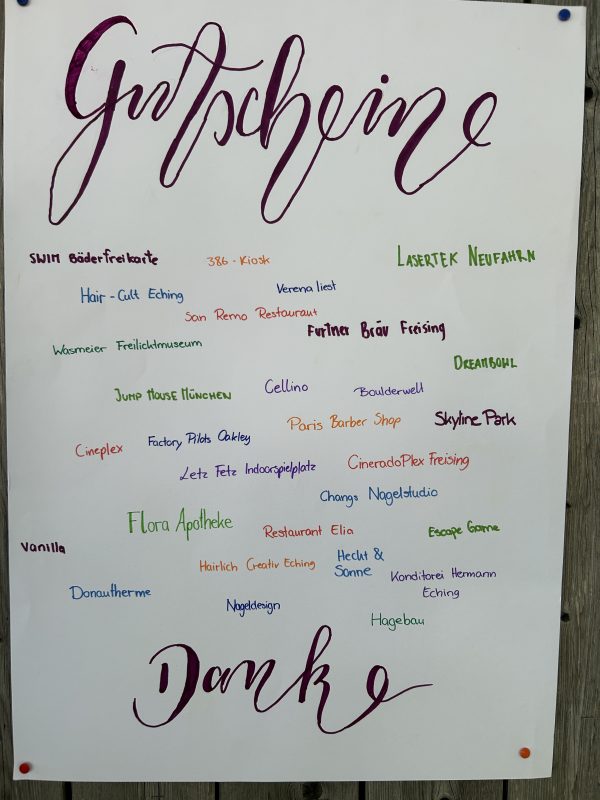 Gutscheine
SWIM Bäderfreikarte
386-Kiosk
LASERTEK NEUFAHRN
Hair-Cult Eching
Verena liest
San Remo Restaurant
Furtner Bräu Freising
Wasmeier Freilichtmuseum
DREAMBOWL
JUMP HOUSE MÜNCHEN
Cellino
Boulderwelt
Paris Barber Shop
Skyline Park
Cineplex
Factory Pilots Oakley
Letz Fetz Indoorspielplatz
CineradoPlex Freising
Changs Nagelstudio
Flora Apotheke
Restaurant Elia
Escape Game
Vanilla
Hairlich Creativ Eching
Hecht &
Sonne
Konditorei Hermann
Eching
Donautherme
Nageldesign
Hagebau
Danke